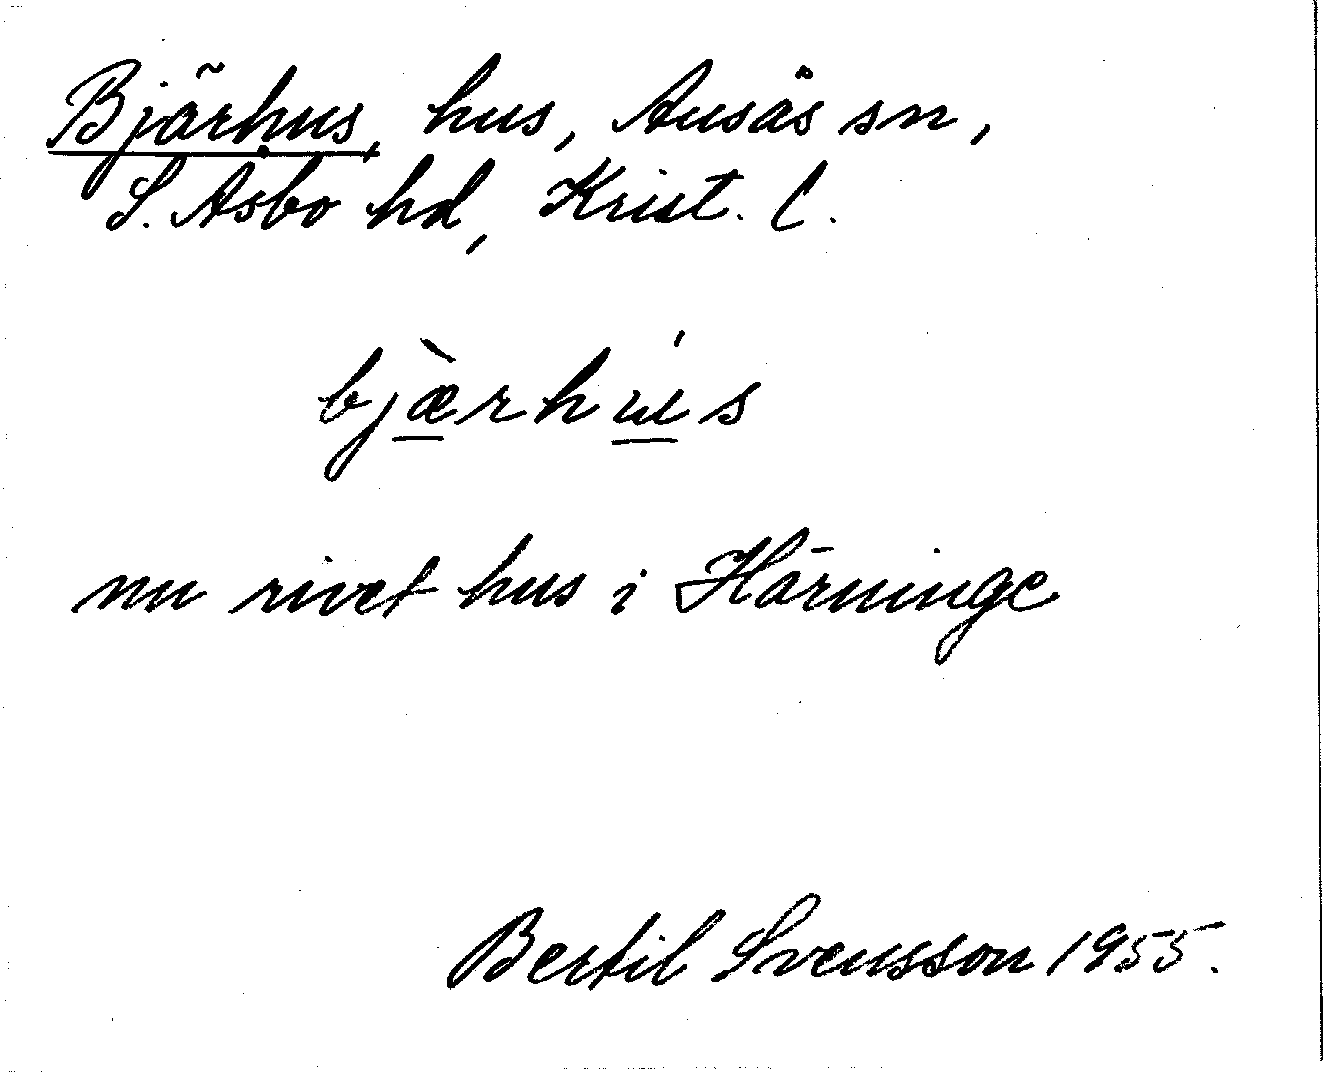 Bjärhus, hus, Ausås sn,
S. Åsbo hd, Krist. l.
bjæ̀rhús
nu rivet hus i Härninge
Bertil Svensson 1955.